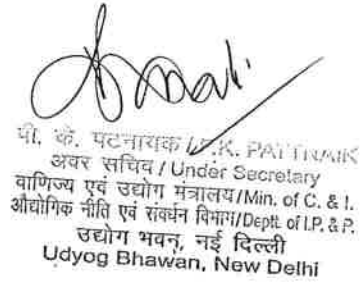 पी. के. पटनायक / P.K. PATTNAIK
अवर सचिव / Under Secretary
वाणिज्य एवं उद्योग मंत्रालय/Min. of C. & I.
औद्योगिक नीति एवं संवर्धन विभाग/Deptt. of I.P. & P.
उद्योग भवन, नई दिल्ली
Udyog Bhawan, New Delhi